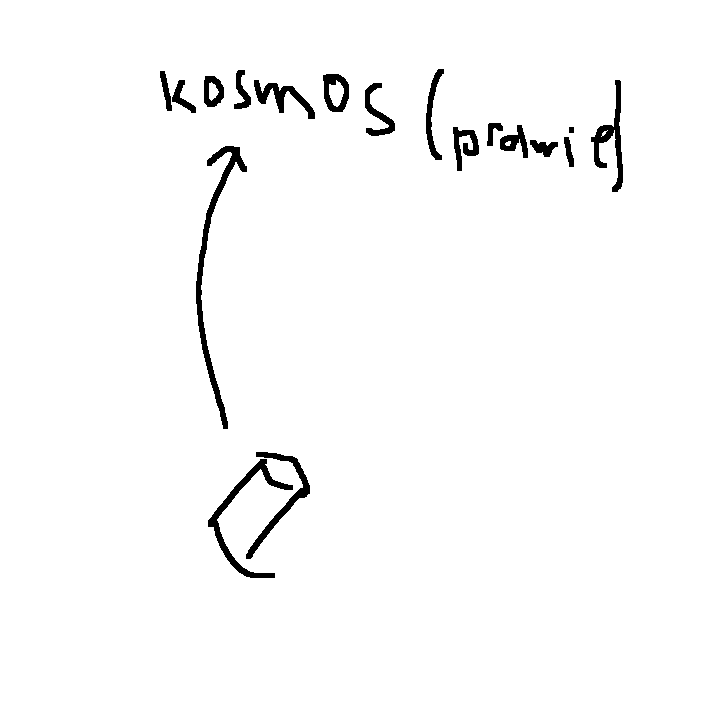 kosmos (prawie)